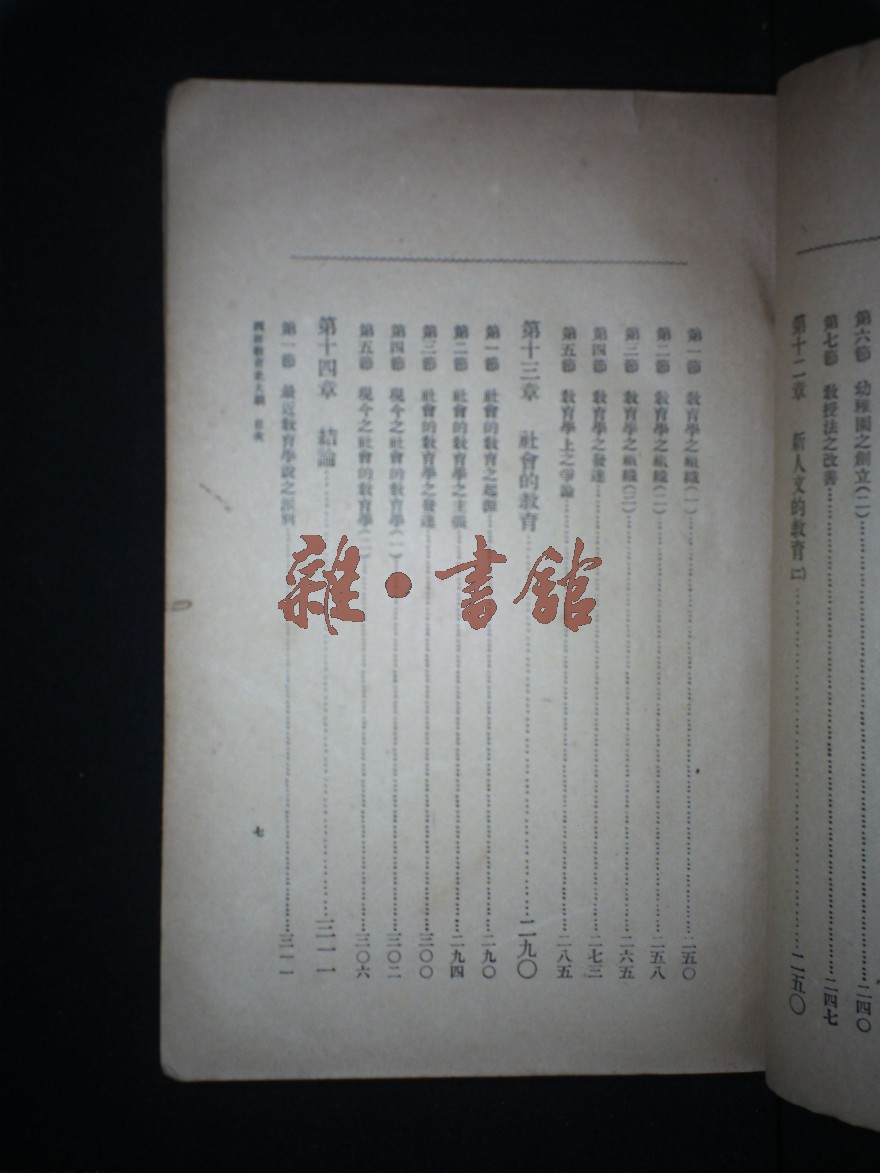 第六節 幼稚園之創立(二)……二四〇
第七節 教授法之改善……二四七
第十二章 新人文的教育(二)……二五〇
第一節 教育學之組織(一)……二五〇
第二節 教育學之組織(二)……二五八
第三節 教育學之組織(三)……二六五
第四節 教育學之發達……二七三
第五節 教育學上之爭論……二八五
第十三章 社會的教育……二九〇
第一節 社會的教育之起源……二九〇
第二節 社會的教育學之主張……二九四
第三節 社會的教育學之發達……三〇〇
第四節 現今之社會的教育學(一)……三〇二
第五節 現今之社會的教育學(二)……三〇六
第十四章 結論……三一一
第一節 最近教育學說之派別……三一一
教育史大綱 目次
七
雜·書館